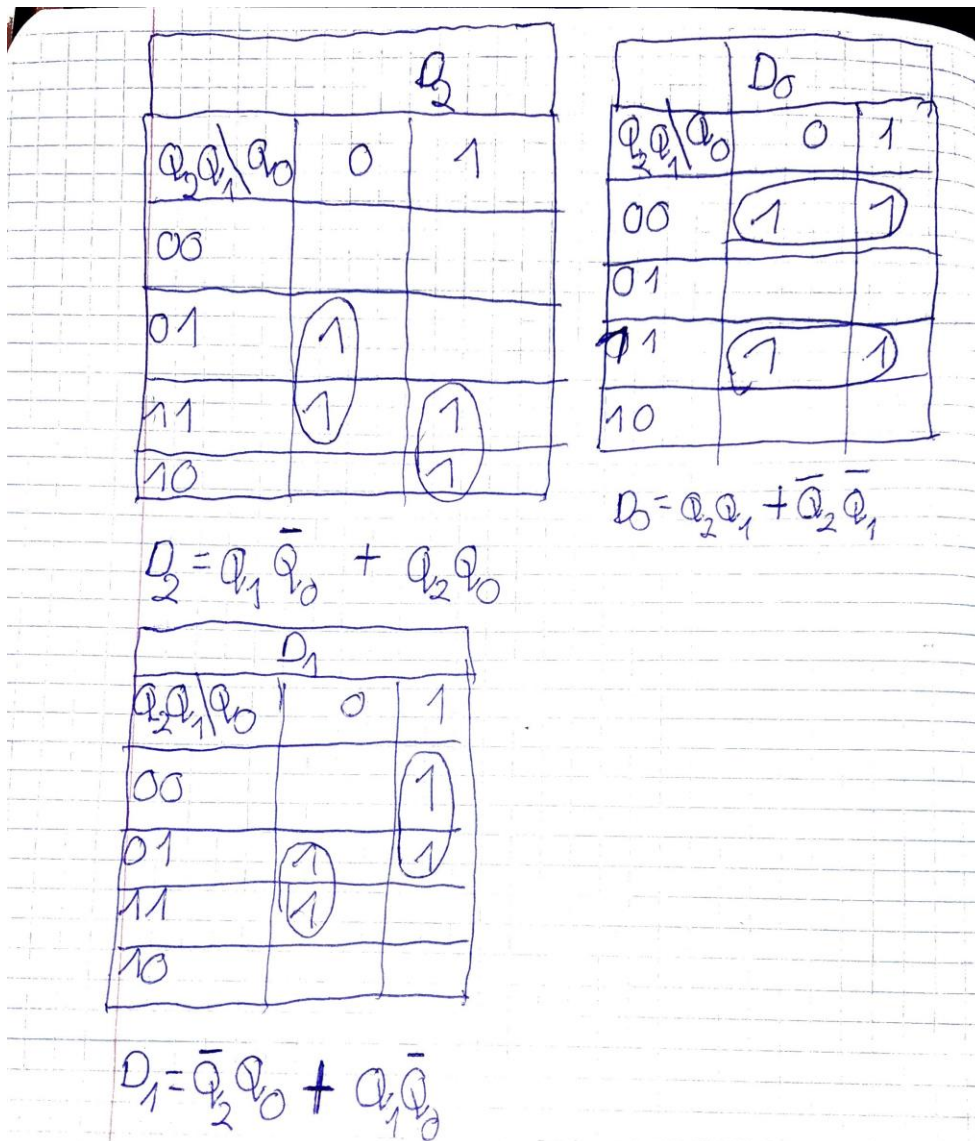 D₂
Q₂Q₁\Q₀ 0 1
00
01 1
11 1 1
10 1
D₂ = Q₁ Q̄₀ + Q₂Q₀
D₀
Q₂Q₁\Q₀ 0 1
00 1 1
01
11 1 1
10
D₀ = Q₂Q₁ + Q̄₂ Q̄₁
D₁
Q₂Q₁\Q₀ 0 1
00 1
01 1 1
11 1
10
D₁ = Q̄₂Q₀ + Q₁Q̄₀